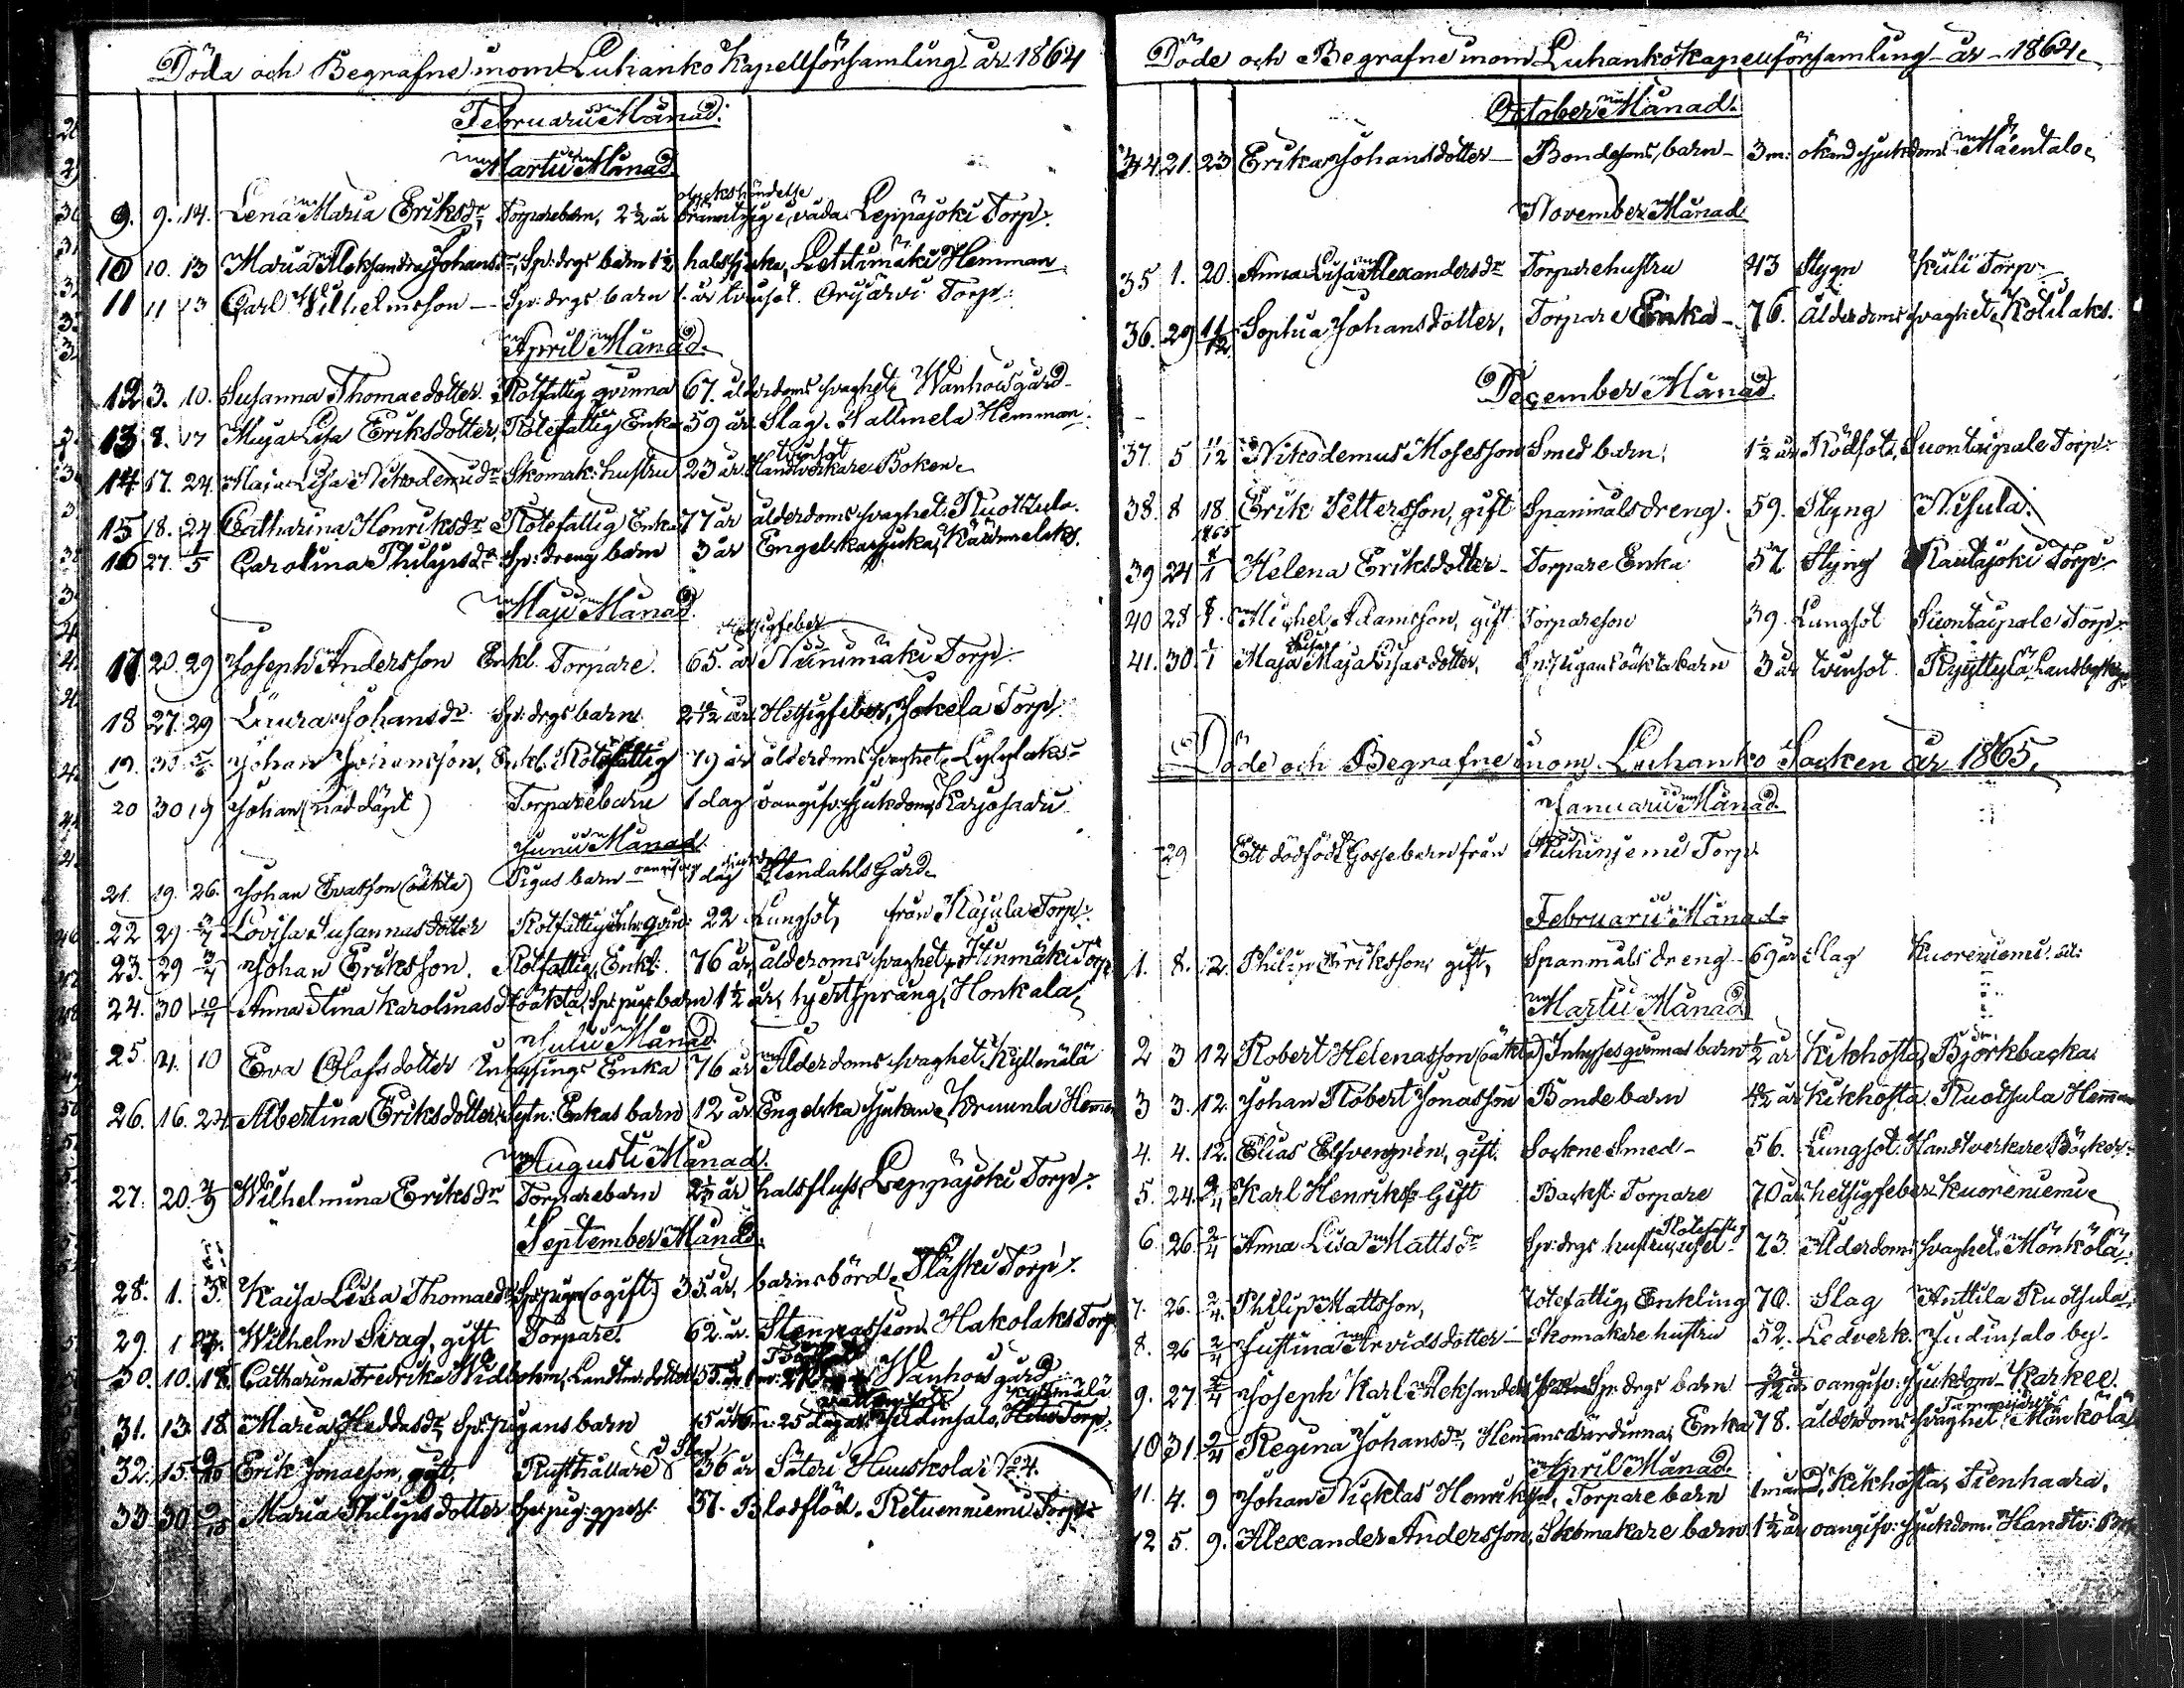 Döda och Begrafne inom Luhanko Kapellförsamling år 1864
Februarii Månad.
Martii Månad.
olyckshändelse
9. 9. 14. Lena Maria Eriksdr, Torparebarn, 2 1/2 år Leppäjoki Torp.
10 10. 13 Maria Aleksandra Johansdr, Sp: drgs barn 1 1/2 halssjuka, Lehtimäki Hemman
11 11 13 Carl Wilhelmsson — Sp: drgs barn 1. år tvinsot. Orijärvi Torp:
April Månad.
12 3. 10. Susanna Thomaedotter. Rotfattig qvinna 67. ålderdoms svaghet, Wanhois gård
13 8. 17 Maja Lisa Eriksdotter, Rotefattig Enka 59 år. Slag. Tallmela Hemman.
14. 17. 24. Maja Lisa Nikodemidr Skomak: hustru 23 år tvinsot Handtverkare Boken.
15 18. 24 Catharina Henriksdr Rotefattig Enka 77 år ålderdoms svaghet. Ruokkula.
16 27. 1/5 Carolina Philipsdr Sp: dreng barn 3 år Engelska sjukan, Käärmelaks.
Maji Månad.
Hetsigfeber
17 20. 29 Joseph Andersson Enkl. Torpare. 65. år Niinimäki Torp.
18 27. 29 Laura Johansdr Sp: drgs barn 2 10/12 år Hetsigfeber, Jokela Torp:
19. 30 5/6 Johan Johansson, Enkl. Rotefattig 79 år ålderdoms svaghet, Lylylaks
20 30 19 Johan (nöddöpt) Torparebarn 1 dag oangifv: sjukdom, Karjosaari
Junii Månad.
21. 19. 26. Johan Evasson (oäkta) Pigas barn oangifven sjukdom 1 dag Stendahls Gård.
22 29 3/7 Lovisa Susannasdotter Rotfattig Inh: qvin: 22 Lungsot, från Kajula Torp:
23. 29 3/7 Johan Eriksson. Rotfattig, Enkl: 76 år, ålderoms svaghet, Hinmäki Torp
24. 30 10/7 Anna Stina Karolinasdr (oäkta), Sp: pigs barn 1 1/2 år, hjertsprång, Honkala,
Julii Månad
25. 4. 10 Eva Olofsdotter Inhysings Enka 76 år Ålderdoms svaghet. Kyllmälä
26. 16. 24. Albertina Eriksdotter, Sytn: Enkas barn 12 år Engelska sjukan, Kruunla Hemm
Augusti Månad.
27. 20. 4/9 Wilhelmina Eriksdr Torparebarn 2 1/3 år halsfluss, Leppäjoki Torp:
September Månad.
28. 1. 3. Kaisa Lisa Thomaedr Sp: piga (ogift) 35. år, barnsbörd. Pläski Torp:
29. 1 17. Wilhelm Svag, gift Torpare. 62. år. Stenpassion Hakolaks Torp
30. 10. 18. Catharina Fredrika Widbohm, Landtm: dotter 55. år Wanhois gård
31. 13. 18. Maria Heddasdr Sp: pigans barn 25 dagar. Vattensot Judinsalo, Torp: Kyllmälä
32. 15. 9/10 Erik Jonasson, gift, Rusthållare Slag 36 år Säteri Huuskola No 4.
33 30 9/10 Maria Philipsdotter Sp: pig: 37. Blodflöd. Retuenniemi Torp:
Döde och Begrafne inom Luhanko kapellförsamling år 1864
October Månad.
34 21. 23 Erika Johansdotter — Bondesons, barn — 3 m: okänd sjukdom Mäentalo,
November Månad
35 1. 20. Anna Lisa Alexandersdr Torparehustru 43 Stygn Kuli Torp
36. 29 11/12 Sophia Johansdotter, Torpare Enka — 76. ålderdoms svaghet, Kotilaks.
December Månad.
37. 5 11/12 Nikodemus Mosesson Smed barn, 1 1/2 år Rödsot, Suontaipale Torp:
38. 8 18 Erik Pettersson, gift Spanmålsdreng. 59. Styng Nisula.
1865
39 24 8/1 Helena Eriksdotter — Torpare Enka 57 Styng Rautajoki Torp:
40 28 8. Michel Adamsson, gift Torpareson 39. Lungsot Suontaipale Torp:
41. 30. 1/1 Maja Lisa Maja Lisasdotter, Sp: pigans oäkta barn 3 år tvinsot. Ryyttylä
Döde och Begrafne inom Luhanko Socken år 1865.
Januarii Månad
29 Ett dödfödt Gosse barn från Ruhinjemi Torp.
Februarii Månad
1. 8. 12. Philip Eriksson, gift, Spanmåls dreng — 69 år Slag Kuoreniemi
Martii Månad
2 3 12 Robert Helenasson (oäkta) Inhyses qvinnas barn 1/2 år Kikhosta, Björkbacka
3 3. 12. Johan Robert Jonasson Bonde barn år kikhosta. Ruotsula Hemman
4. 4. 12. Elias Elfvengren, gift. Sockne Smed — 56. Lungsot. Handtverkare Böcker
5. 24. 2/4 Karl Henrikss: Gift Backst: Torpare 70 år hetsigfeber. Kuoreniemi,
6. 26. 2/4 Anna Lisa Mattsdr Sp: drgs hustru, Rotefattig 73. Ålderdoms svaghet. Mönkölä.
7. 26. 2/4 Philip Mattsson, rotefattig, Enkling 70. Slag Anttila Ruotsula.
8. 26 2/4 Justina Arvidsdotter — Skomakare hustru 52. Ledverk. Judinsalo by.
9. 27. 2/4 Joseph Karl Aleksanders son Sp: drgs barn 3/12 år oangifv: sjukdom — Karkee.
10 31. 2/4 Regina Johansdr, Hemmans värdinna, Enka 78. ålderdoms svaghet. Mönkölä
April Månad.
11. 4. 9 Johan Nicklas Henriksson, Torpare barn 1 månad, Kikhosta, Tienhaara.
12 5. 9. Alexander Andersson, Skomakare barn 1 1/2 år, oangifv: sjukdom. Handtv: